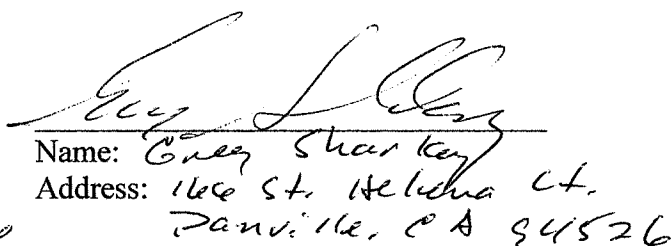 Name: Greg Sharkey
Address: St. Helena Ct.
Danville, CA 94526